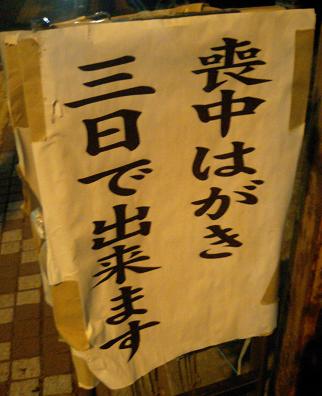 喪中はがき
三日で出来ます